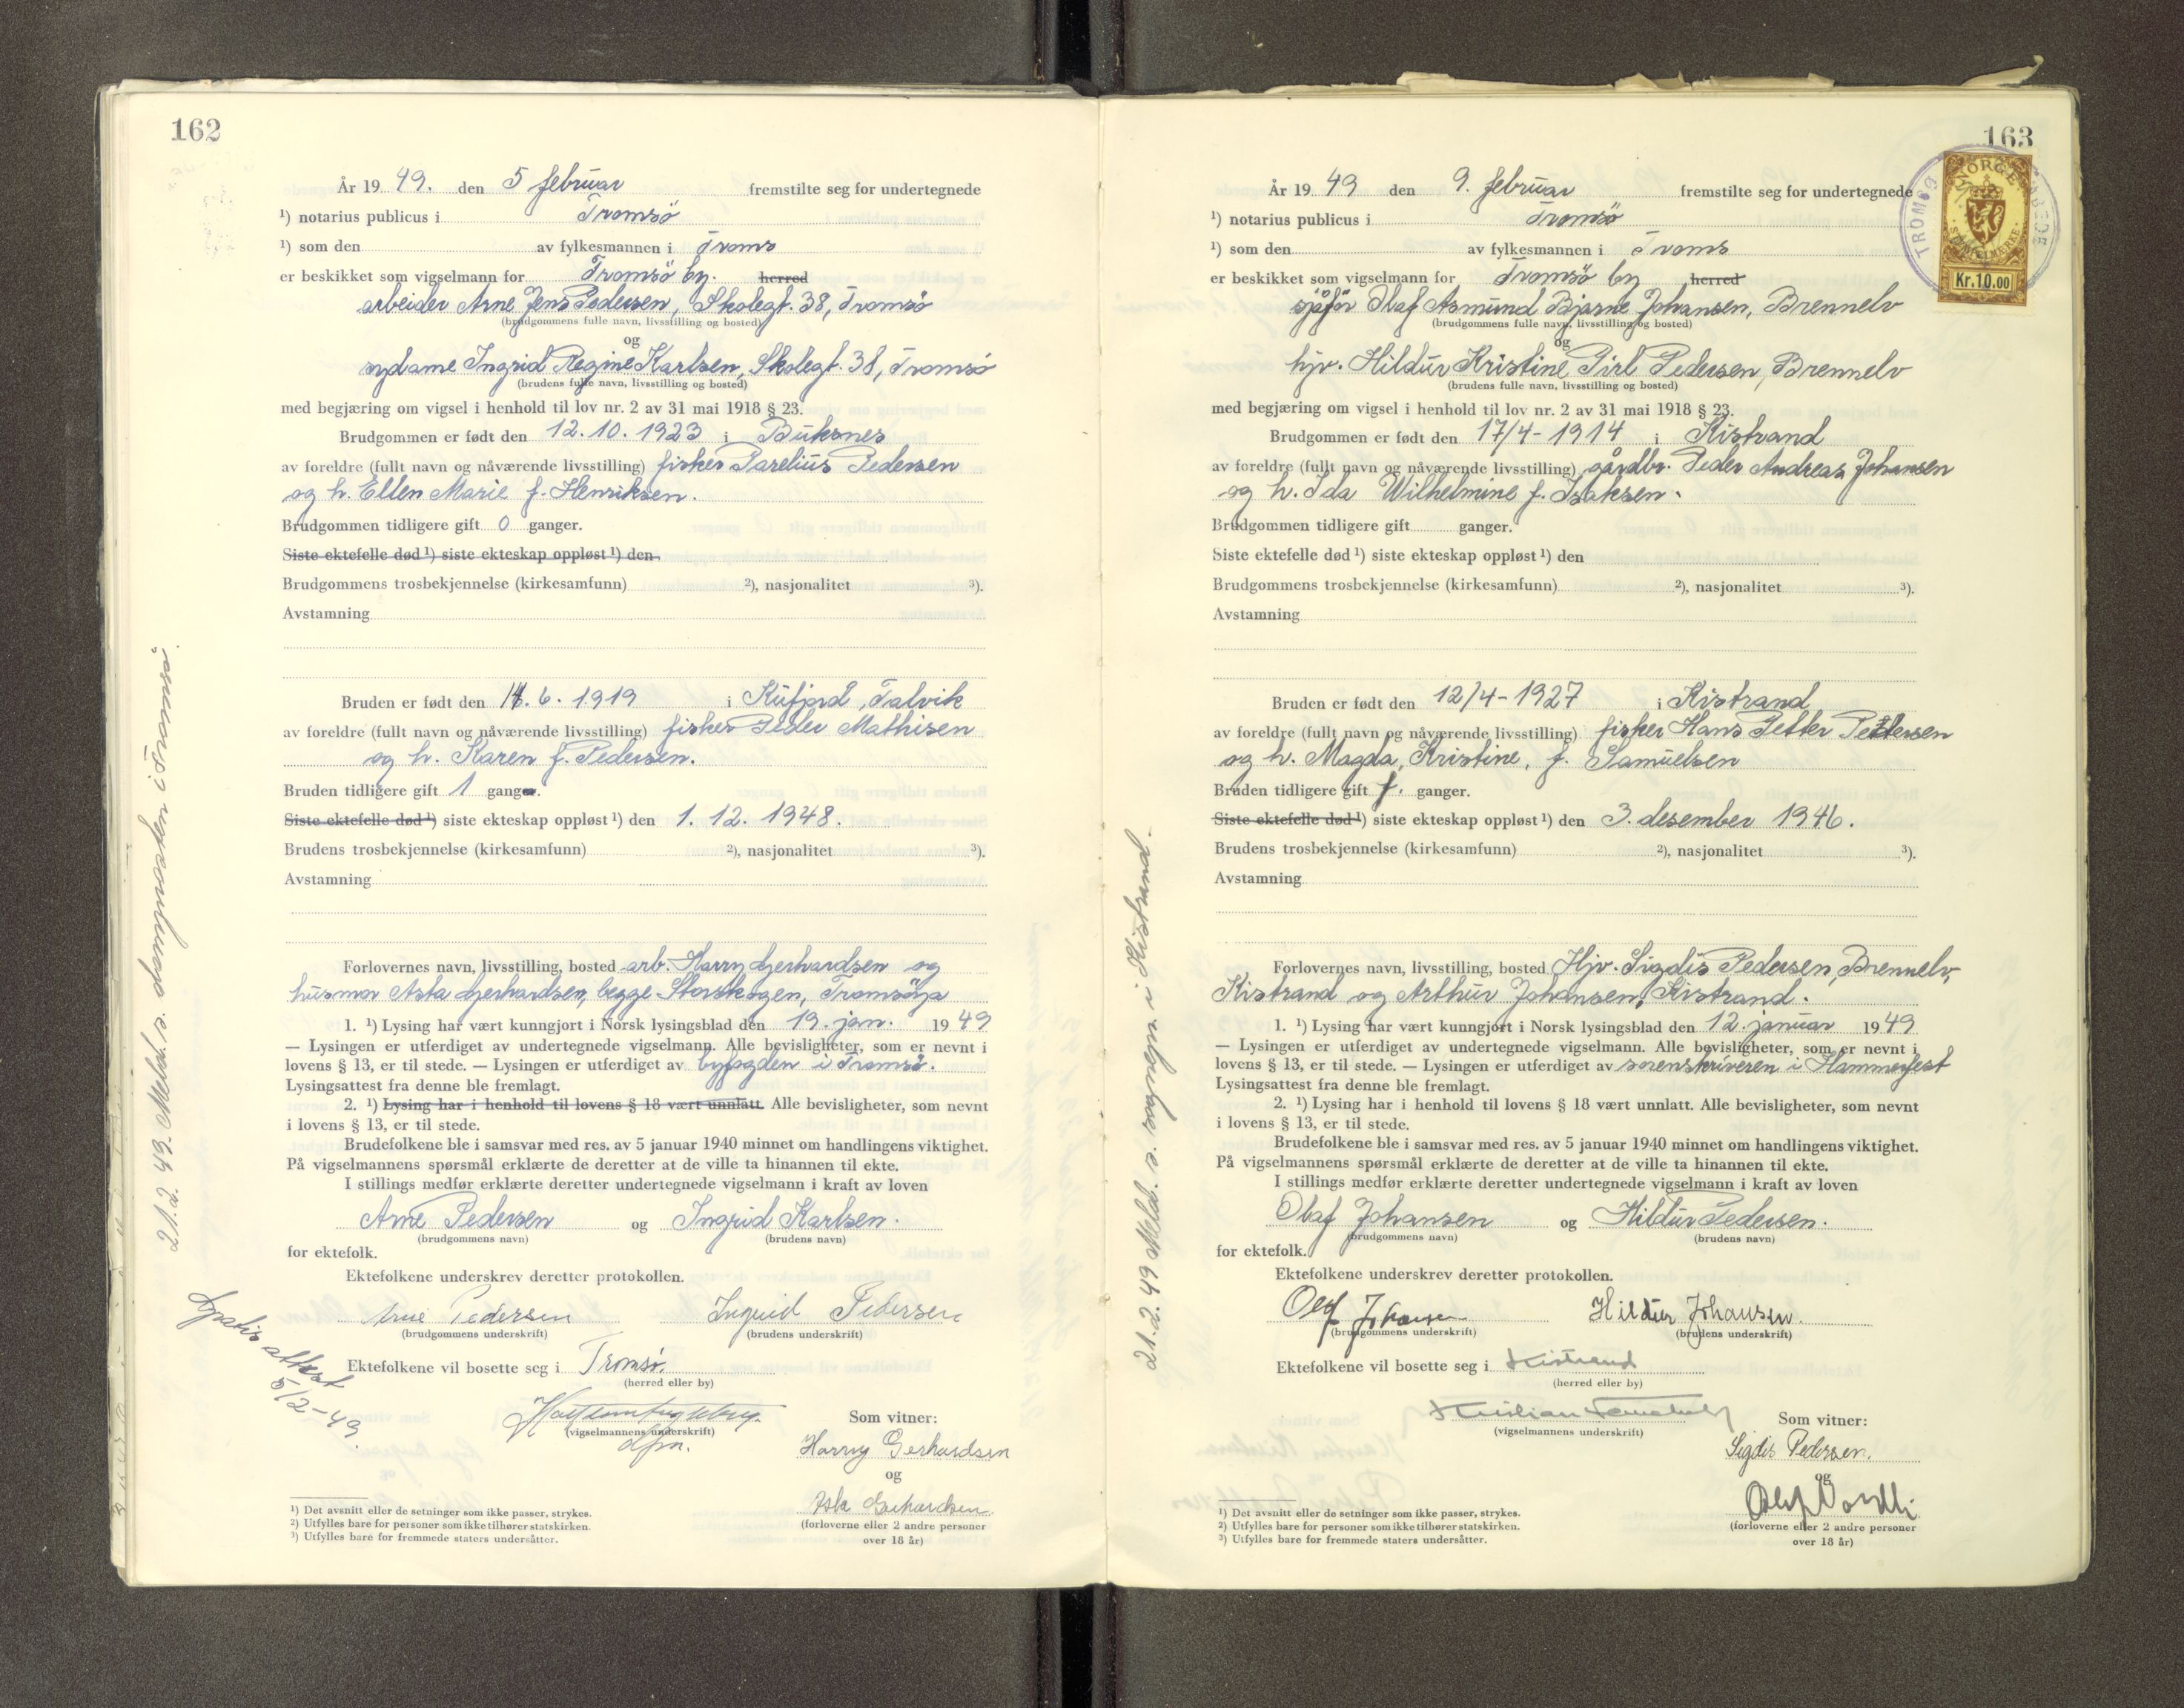 162
År 19 49. den 5 februar fremstilte seg for undertegnede
¹) notarius publicus i Tromsö
¹) som den av fylkesmannen i Troms
er beskikket som vigselmann for Tromsö by. herred
arbeider Arne Jens Pedersen, Skolegt. 38, Tromsö
(brudgommens fulle navn, livsstilling og bosted)
og
sydame Ingrid Regine Karlsen, Skolegt. 38, Tromsö
(brudens fulle navn, livsstilling og bosted)
med begjæring om vigsel i henhold til lov nr. 2 av 31 mai 1918 § 23.
Brudgommen er født den 12.10.1923 i Buksnes
av foreldre (fullt navn og nåværende livsstilling) fisker Parelius Pedersen
og h. Ellen Marie f. Henriksen.
Brudgommen tidligere gift 0 ganger.
Siste ektefelle død ¹) siste ekteskap oppløst ¹) den
Brudgommens trosbekjennelse (kirkesamfunn) ²), nasjonalitet ³).
Avstamning
Bruden er født den .6.1919 i Kufjord, Talvik
av foreldre (fullt navn og nåværende livsstilling) fisker Peder Mathisen
og h. Karen f. Pedersen.
Bruden tidligere gift 1 gang.
Siste ektefelle død ¹) siste ekteskap oppløst ¹) den 1.12.1948.
Brudens trosbekjennelse (kirkesamfunn) ²), nasjonalitet ³).
Avstamning
Forlovernes navn, livsstilling, bosted arb. Harry Gerhardsen og
husmor Asta Gerhardsen, begge Storskogen, Tromsöya
1. ¹) Lysing har vært kunngjort i Norsk lysingsblad den 19. jan. 19 49
— Lysingen er utferdiget av undertegnede vigselmann. Alle bevisligheter, som er nevnt i
lovens § 13, er til stede. — Lysingen er utferdiget av byfogden i Tromsö.
Lysingsattest fra denne ble fremlagt.
2. ¹) Lysing har i henhold til lovens § 18 vært unnlatt. Alle bevisligheter, som nevnt
i lovens § 13, er til stede.
Brudefolkene ble i samsvar med res. av 5 januar 1940 minnet om handlingens viktighet.
På vigselmannens spørsmål erklærte de deretter at de ville ta hinannen til ekte.
I stillings medfør erklærte deretter undertegnede vigselmann i kraft av loven
Arne Pedersen og Ingrid Karlsen.
(brudgommens navn) (brudens navn)
for ektefolk.
Ektefolkene underskrev deretter protokollen.
Arne Pedersen Ingrid Pedersen
(brudgommens underskrift) (brudens underskrift)
Ektefolkene vil bosette seg i Tromsö.
(herred eller by)
(vigselmannens underskrift)
Som vitner:
Harry Gerhardsen
og
Asta Gerhardsen
(forloverne eller 2 andre personer
over 18 år)
¹) Det avsnitt eller de setninger som ikke passer, strykes.
²) Utfylles bare for personer som ikke tilhører statskirken.
³) Utfylles bare for fremmede staters undersåtter.
21.2.49. Meld. s. domprosten i Tromsö.
Gratis attest
5/2-49.
163
TROMSØ
NORGE
STEMPELMERKE
Kr.10.00
År 19 49 den 9. februar fremstilte seg for undertegnede
¹) notarius publicus i Tromsö
¹) som den av fylkesmannen i Troms
er beskikket som vigselmann for Tromsö by herred
sjåför Olaf Asmund Bjarne Johansen, Brennelv
(brudgommens fulle navn, livsstilling og bosted)
og
hjv. Hildur Kristine Pirl Pedersen, Brennelv
(brudens fulle navn, livsstilling og bosted)
med begjæring om vigsel i henhold til lov nr. 2 av 31 mai 1918 § 23.
Brudgommen er født den 17/4-1914 i Kistrand
av foreldre (fullt navn og nåværende livsstilling) gårdbr. Peder Andreas Johansen
og h. Ida Wilhelmine f. Isaksen.
Brudgommen tidligere gift ganger.
Siste ektefelle død ¹) siste ekteskap oppløst ¹) den
Brudgommens trosbekjennelse (kirkesamfunn) ²), nasjonalitet ³).
Avstamning
Bruden er født den 12/4-1927 i Kistrand
av foreldre (fullt navn og nåværende livsstilling) fisker Hans Petter Pettersen
og h. Magda, Kristine, f. Samuelsen
Bruden tidligere gift 1. ganger.
Siste ektefelle død ¹) siste ekteskap oppløst ¹) den 3. desember 1946.
Brudens trosbekjennelse (kirkesamfunn) ²), nasjonalitet ³).
Avstamning
Forlovernes navn, livsstilling, bosted Hjv. Sigdis Pedersen, Brennelv,
Kistrand og Arthur Johansen, Kistrand.
1. ¹) Lysing har vært kunngjort i Norsk lysingsblad den 12. januar 19 49
— Lysingen er utferdiget av undertegnede vigselmann. Alle bevisligheter, som er nevnt i
lovens § 13, er til stede. — Lysingen er utferdiget av sorenskriveren i Hammerfest
Lysingsattest fra denne ble fremlagt.
2. ¹) Lysing har i henhold til lovens § 18 vært unnlatt. Alle bevisligheter, som nevnt
i lovens § 13, er til stede.
Brudefolkene ble i samsvar med res. av 5 januar 1940 minnet om handlingens viktighet.
På vigselmannens spørsmål erklærte de deretter at de ville ta hinannen til ekte.
I stillings medfør erklærte deretter undertegnede vigselmann i kraft av loven
Olaf Johansen og Hildur Pedersen.
(brudgommens navn) (brudens navn)
for ektefolk.
Ektefolkene underskrev deretter protokollen.
Olaf Johansen Hildur Johansen.
(brudgommens underskrift) (brudens underskrift)
Ektefolkene vil bosette seg i Kistrand
(herred eller by)
(vigselmannens underskrift)
Som vitner:
Sigdis Pedersen.
og
(forloverne eller 2 andre personer
over 18 år)
¹) Det avsnitt eller de setninger som ikke passer, strykes.
²) Utfylles bare for personer som ikke tilhører statskirken.
³) Utfylles bare for fremmede staters undersåtter.
21.2.49 Meld. s. sognepr. i Kistrand.